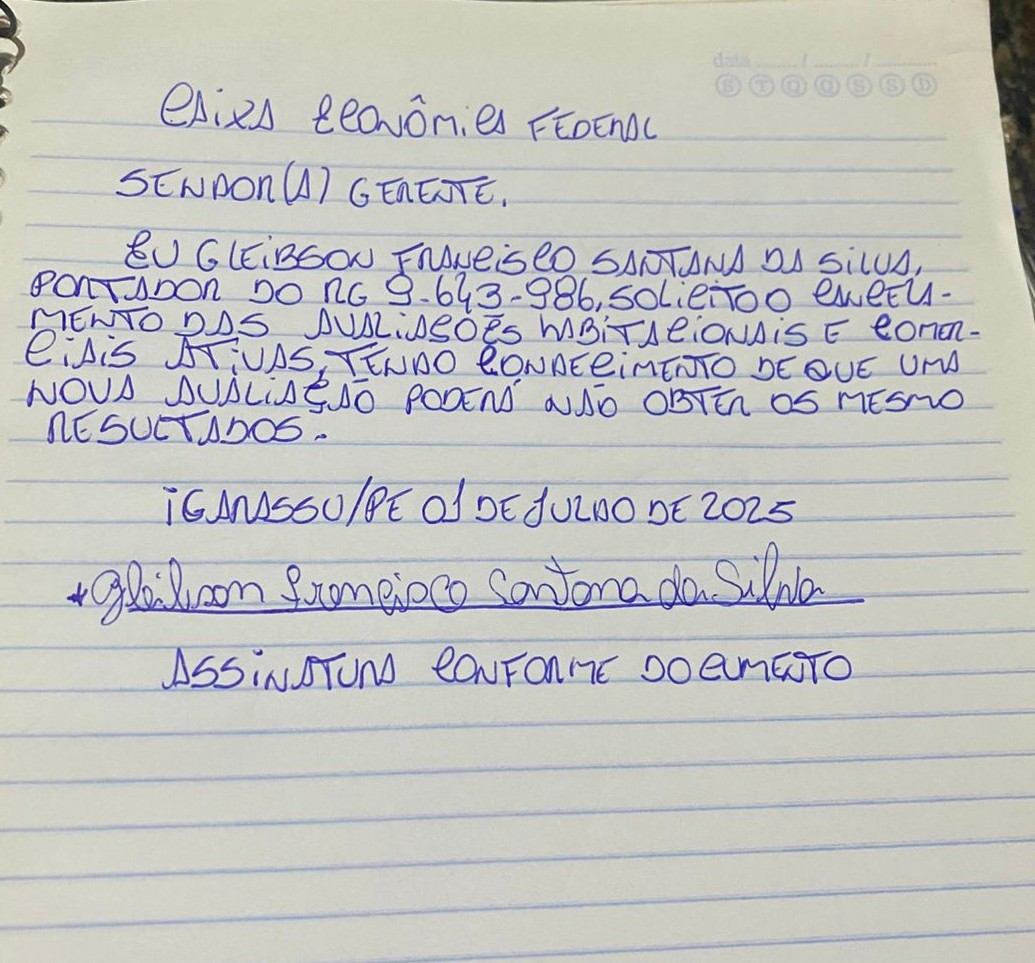 data ___/___/___
S T Q Q S S D
CAIXA ECONÔMICA FEDERAL
SENHOR(A) GERENTE.
EU GLEIBSON FRANCISCO SANTANA DA SILVA,
PORTADOR DO RG 9.643-986, SOLICITO O CANCELA-
MENTO DAS AVALIAÇÕES HABITACIONAIS E COMER-
CIAIS ATIVAS, TENDO CONHECIMENTO DE QUE UMA
NOVA AVALIAÇÃO PODERÁ NÃO OBTER OS MESMO
RESULTADOS.
IGARASSU/PE 01 DE JULHO DE 2025
*Gleibson Francisco Santana da Silva
ASSINATURA CONFORME DOCUMENTO